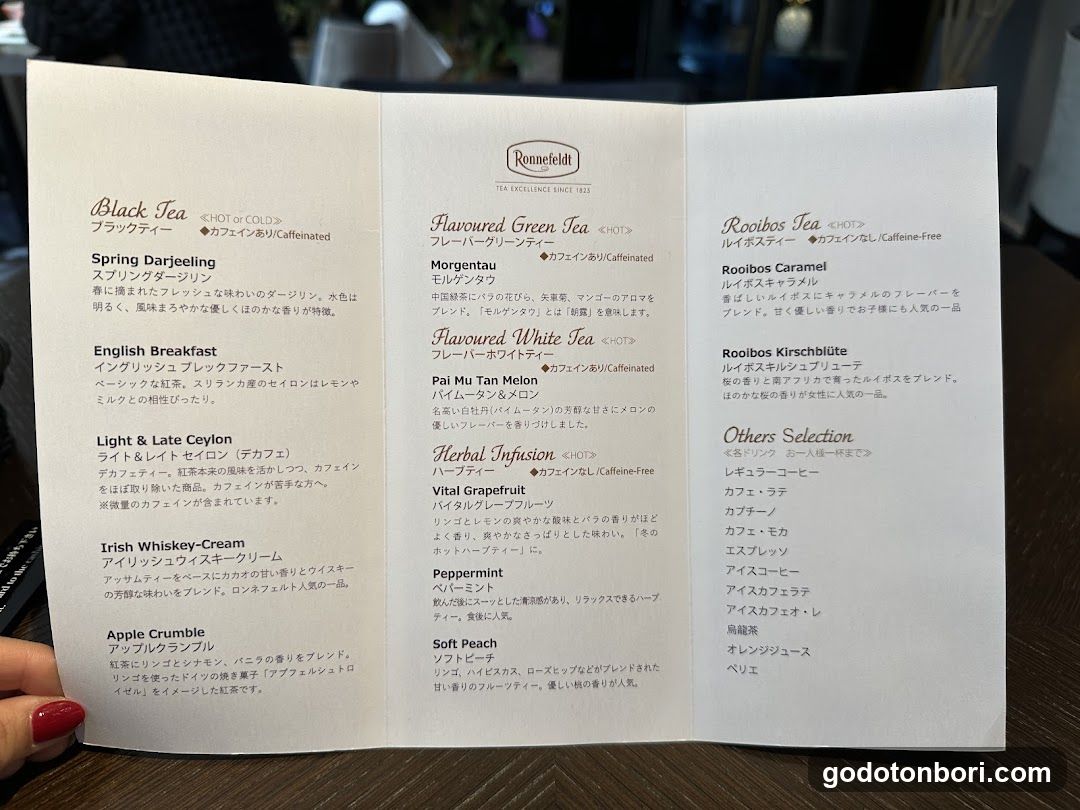 Black Tea ≪HOT or COLD≫
ブラックティー ◆カフェインあり/Caffeinated
Spring Darjeeling
スプリングダージリン
春に摘まれたフレッシュな味わいのダージリン。水色は
明るく、風味まろやかな優しくほのかな香りが特徴。
English Breakfast
イングリッシュ ブレックファースト
ベーシックな紅茶。スリランカ産のセイロンはレモンや
ミルクとの相性ぴったり。
Light & Late Ceylon
ライト＆レイト セイロン（デカフェ）
デカフェティー。紅茶本来の風味を活かしつつ、カフェイン
をほぼ取り除いた商品。カフェインが苦手な方へ。
※微量のカフェインが含まれています。
Irish Whiskey-Cream
アイリッシュウィスキークリーム
アッサムティーをベースにカカオの甘い香りとウイスキー
の芳醇な味わいをブレンド。ロンネフェルト人気の一品。
Apple Crumble
アップルクランブル
紅茶にリンゴとシナモン、バニラの香りをブレンド。
リンゴを使ったドイツの焼き菓子「アプフェルシュトロ
イゼル」をイメージした紅茶です。
Ronnefeldt
TEA EXCELLENCE SINCE 1823
Flavoured Green Tea ≪HOT≫
フレーバーグリーンティー
◆カフェインあり/Caffeinated
Morgentau
モルゲンタウ
中国緑茶にバラの花びら、矢車菊、マンゴーのアロマを
ブレンド。「モルゲンタウ」とは「朝露」を意味します。
Flavoured White Tea ≪HOT≫
フレーバーホワイトティー
◆カフェインあり/Caffeinated
Pai Mu Tan Melon
パイムータン＆メロン
名高い白牡丹(パイムータン)の芳醇な甘さにメロンの
優しいフレーバーを香りづけしました。
Herbal Infusion ≪HOT≫
ハーブティー ◆カフェインなし/Caffeine-Free
Vital Grapefruit
バイタルグレープフルーツ
リンゴとレモンの爽やかな酸味とバラの香りがほど
よく香り、爽やかなさっぱりとした味わい。「冬の
ホットハーブティー」に。
Peppermint
ペパーミント
飲んだ後にスーッとした清涼感があり、リラックスできるハーブ
ティー。食後に人気。
Soft Peach
ソフトピーチ
リンゴ、ハイビスカス、ローズヒップなどがブレンドされた
甘い香りのフルーツティー。優しい桃の香りが人気。
Rooibos Tea ≪HOT≫
ルイボスティー ◆カフェインなし/Caffeine-Free
Rooibos Caramel
ルイボスキャラメル
香ばしいルイボスにキャラメルのフレーバーを
ブレンド。甘く優しい香りでお子様にも人気の一品
Rooibos Kirschblüte
ルイボスキルシュブリューテ
桜の香りと南アフリカで育ったルイボスをブレンド。
ほのかな桜の香りが女性に人気の一品。
Others Selection
≪各ドリンク お一人様一杯まで≫
レギュラーコーヒー
カフェ・ラテ
カプチーノ
カフェ・モカ
エスプレッソ
アイスコーヒー
アイスカフェラテ
アイスカフェオ・レ
烏龍茶
オレンジジュース
ペリエ
godotonbori.com